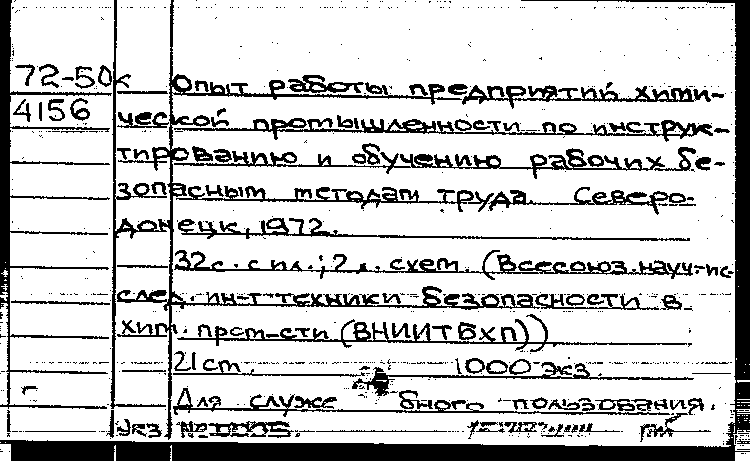 72-50к Опыт работы предприятий хими-
4156 ческой промышленности по инструк-
тированию и обучению рабочих бе-
зопасным методам труда. Северо-
донецк, 1972.
32с. с ил.; 2 л. схем. (Всесоюз. науч-ис-
след. ин-т техники безопасности в
хим. пром-сти (ВНИИТБХП))
21 cm. 1000 экз.
Для служе бного пользования.
Экз. №